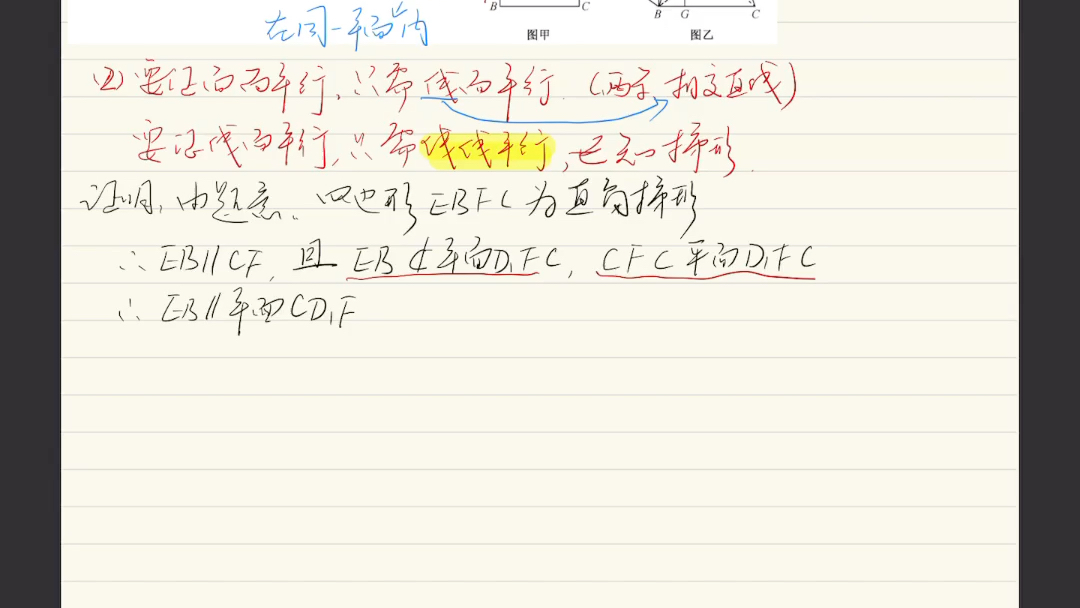 B C B G C
在同一平面内 图甲 图乙
(2) 要证面面平行,只需线面平行.(两条相交直线)
要证线面平行,只需线线平行,已知梯形.
证明,由题意、四边形EBFC为直角梯形
∴EB∥CF,且EB⊄平面D₁FC,CF⊂平面D₁FC
∴EB∥平面CD₁F